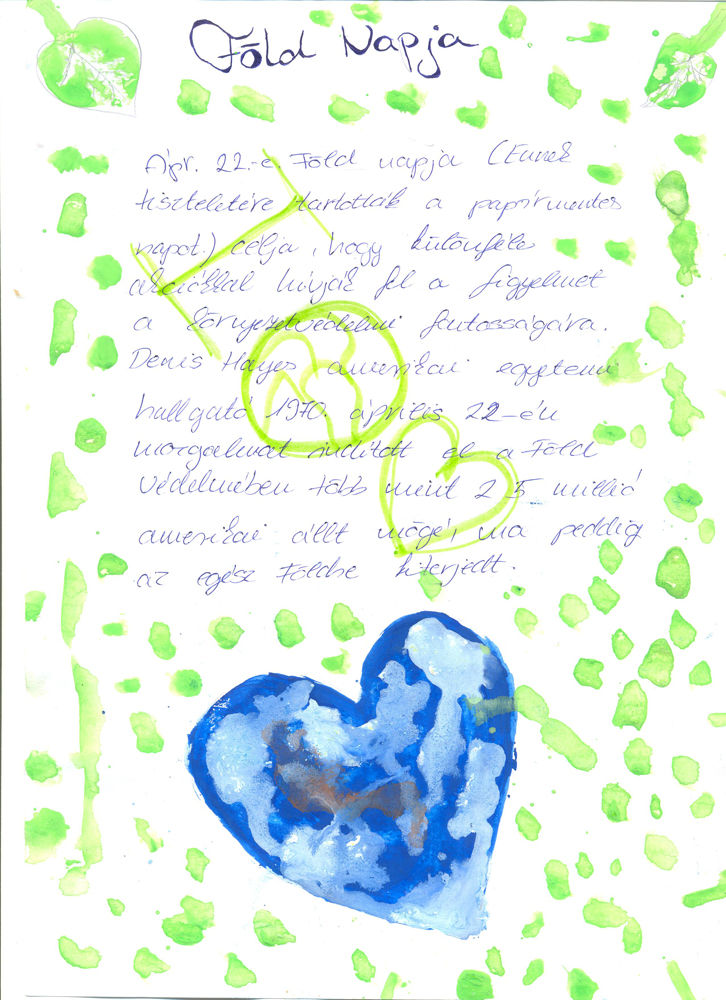 Föld Napja
Ápr. 22.-e Föld napja (Ennek
tiszteletére tartották a papírmentes
napot.) célja, hogy különféle
akciókkal hívják fel a figyelmet
a környezetvédelmi fontosságára.
Denis Hayes amerikai egyetemi
hallgató 1970. április 22-én
mozgalmat indított el a Föld
védelmében több mint 25 millió
amerikai állt mögé, ma peddig
az egész Földre kiterjedt.